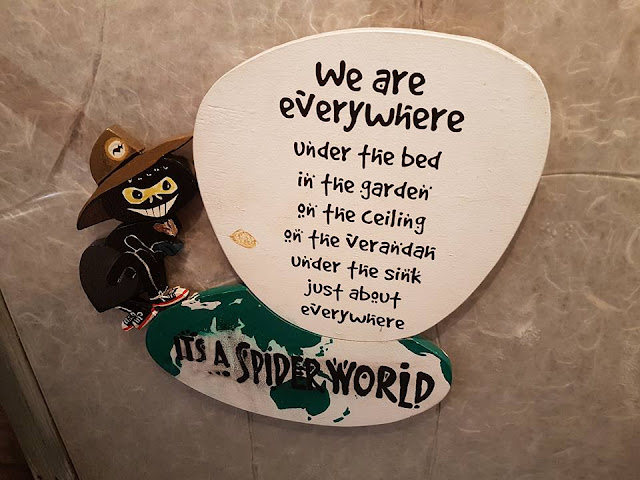 We are
everywhere
under the bed
in the garden
on the ceiling
on the verandah
under the sink
just about
everywhere
IT'S A SPIDER WORLD